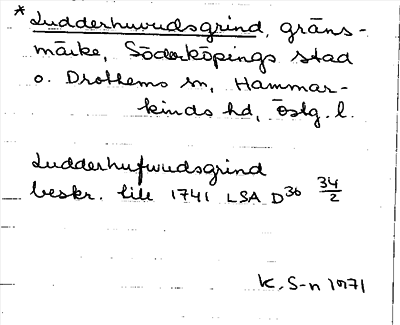 * Ludderhuvudsgrind, gräns-
märke, Söderköpings stad
o. Drothems sn, Hammar-
kinds hd, Östg. l.
Ludderhufwudsgrind
beskr. till 1741 LSA D36 34/2
K. S-n 1971